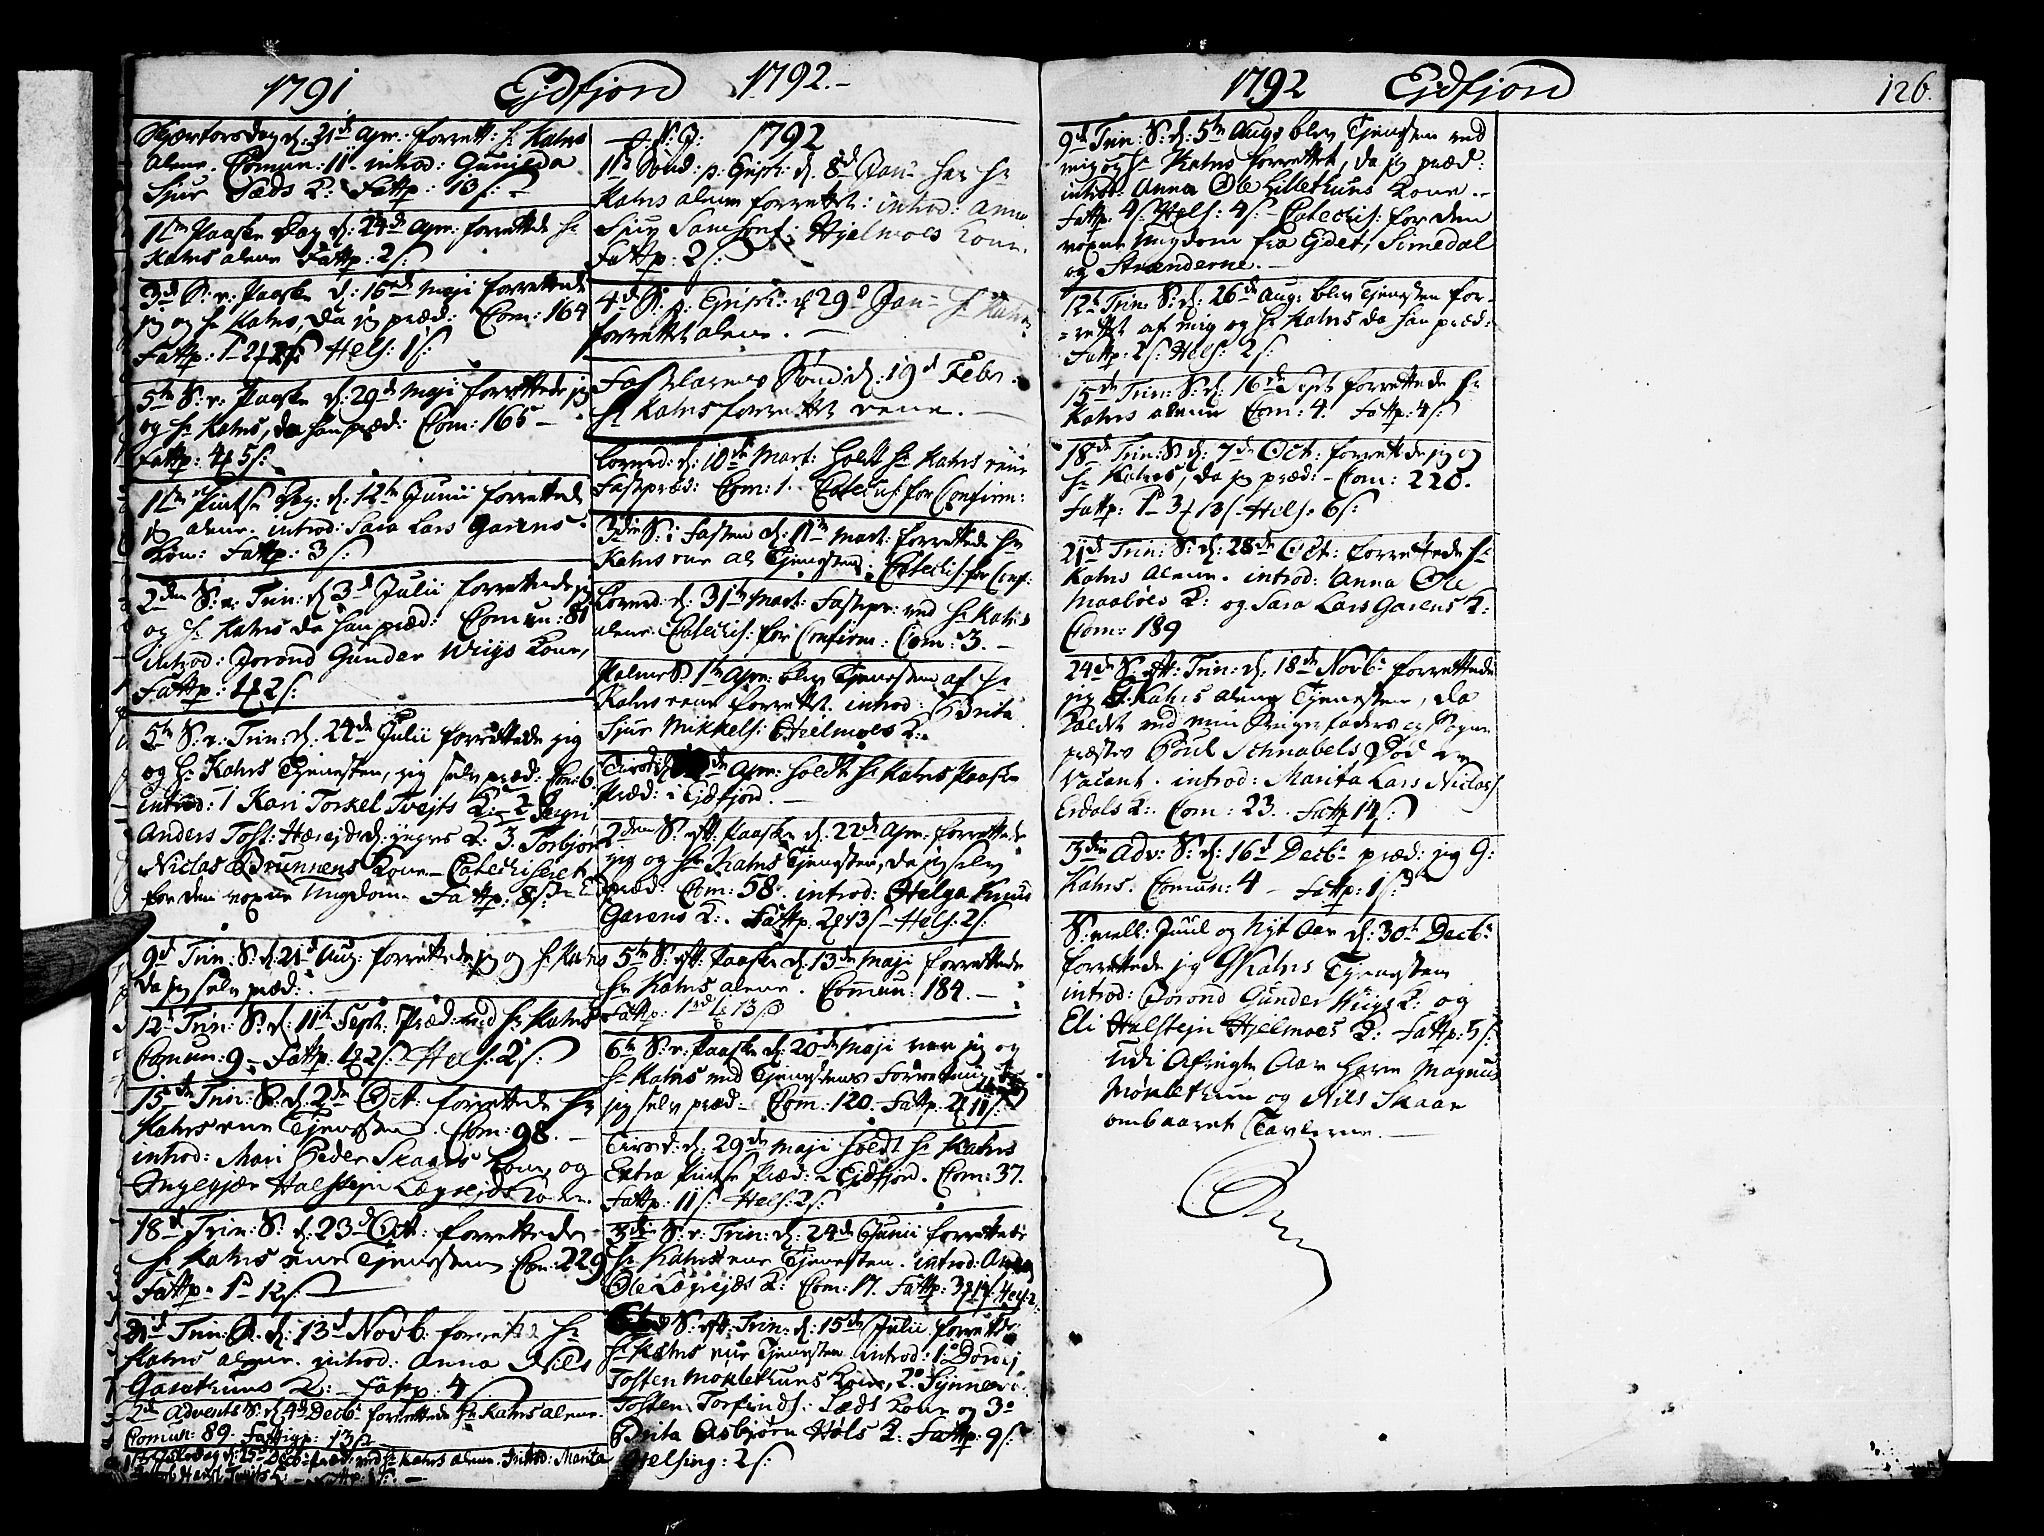 1791 Ejdfjord 1792.-
Skjærtorsdag d: 21de Apr: forrett: Hr Kahrs
alene. Comun: 11. introd: Gunilda
Sjur Sæds K: Fattp: 13 s:
1ste Paaske Dag d: 24de Apr: forrettede Hr
Kahrs alene Fattp: 2 s:
3d S: e: Paaske d: 15de Maji forrettede
jeg og Hr Kahrs, da jeg præd: Com: 164
Fattp: Hels: 1 s:
5te S: e: Paaske d: 29de Maji forrettede jeg
og Hr Kahrs, da han præd: Com: 165 -
Fattp: 4 5 s:
1ste Pintse Dag: d: 12te Junii forrettede
jeg alene. introd: Sara Lars Garens
Kone: Fattp: 3 s:
2den S: e: Trin: d: 3d Julii forrettede jeg
og Hr Kahrs da han præd: Comun: 81
introd: Jorond Gunder Wiigs Kone,
Fattp: 4 2 s:
5te S: e: Trin: d: 24de Julii forrettede jeg
og Hr Kahrs Tjenesten, jeg selv præd: Com: 6.
introd: 1 Kari Torkel Tvejts K: 2
Anders Tost: K: 3. Torbjor
Niclas Brunnens Kone - Catechiseret
for den voxne Ungdom Fattp: 8 s:
9d Trin: S: d: 21d Aug: forrettede jeg og Hr Kahrs
da jeg selv præd:
12te Trin: S: d: 11te Sept: Præd: med Hr Kahrs
Comun: 9 - Fattp: 4 2 s: - Hels: 2 s:
15de Trin: S: d: 2de Oct: forrettede Hr
Kahrs ene Tjenesten. Com: 98. -
introd: Mari Peder Skaars Kone, og
Ingegjær Halstejn Lægrejds Kone.
18d Trin: S: d: 23d Oct: forrettede
Hr Kahrs ene Tjenesten Com: 229
Fattp: 1 12 s: -
21d Trin: S: d: 13d Novb: forrettede Hr
Kahrs alene. introd: Anna Nils
Garethuns K: - Fattp: 4
2de Advents S: d: 4d Decb: forrettede Hr Kahrs alene.
Comun: 89. Fattigp: 13 s:
1ste Juledag d: 25d Decb: præd: Hr Kahrs alene. Introd: Marita
1792
1ste Sønd: p: Epiph: d: 8d Jan: har Hr
Kahrs alene forrettet: introd: Anna
Sjur Samsons: Hjelmoes Kone.
Fattp: 2 s:
4de S: p: Epiph: d: 29d Jan: Hr Kahrs
forrettet alene. -
Fastelavns Sønd: d: 19d Febr.
Hr Kahrs forrettet ene. -
Løverd: d: 10de Mart: holdt Hr Kahrs ene
Fastepræd: Com: 1. Catechis: for Confirm:
3die S: i Fasten d: 11te Mart: forrettede Hr
Kahrs ene al Tjenesten: Catechis: for Conf:
Løverd: d: 31te Mart: Fastepr: ved Hr Kahrs
alene. Catechis: for Confirm: Com: 3. -
Palme S: 1te Apr: blev Tjenesten af Hr
Kahrs ene forrettet. introd: Brita
Sjur Mikkels: Hielmoes K:
Tirsd: d: Apr: holdt Hr Kahrs Paaske
Præd: i Ejdfjord. -
2den S: eft: Paaske d: 22de Apr: forrettede
jeg og Hr Kahrs Tjenesten, da jeg selv
præd: Com: 58. introd: Helga Knus
Garens K: Fattp: 2 13 s - Hels: 2 s:
5te S: eft: Paaske d: 13de Maji forrettede
Hr Kahrs alene. Commun: 184. -
Fattp: 13 s
6te S: e: Paaske d: 20de Maji var jeg og
Hr Kahrs med Tjenestens Forrettning
jeg selv præd - Com: 120. Fattp: 2 11 s:
Tirsd: d: 29de Maji holdt Hr Kahrs
Extra Pintse Præd: i Ejdfjord. Com: 37.
Fattp: 11 s: - Hels: 2 s:
3die S: e: Trin: d: 24de Junii forrettede
Hr Kahrs ene Tjenesten. introd:
Ole Lægrejds K: Com: 17. Fattp: 3
S: eft: Trin: d: 15de Julii forrett:
Hr Kahrs ene Tjenesten introd: 1: Dordej
Tosten Møklethuns Kone, 2o Synneve
Tosten Torfinds: Sæds Kone og 3o
Brita Asbjørn Høls K: Fattp: 9 s:
Helsing: 2 s:
1792 Ejdfjord 126.
9de Trin: S: d: 5te Aug: blev Tjenesten ved
mig og Hr Kahrs forrettet, da jeg præd:
introd: Anna Ole Lillethuns Kone. -
Fattp: 4 s: Hels: 4 s: - Catechis: for den
voxne Ungdom fra Ejdet, Simedal
og Strænderne. -
12te Trin: S: d: 26de Aug: blev Tjenesten for-
=rettet af mig og Hr Kahrs da han præd:
Fattp: 2 s: Hels: 2 s:
15de Trin: S: d: 16de Sept forrettede Hr
Kahrs alene Com: 4. Fattp: 4 s:
18de Trin: S: d: 7de Oct: forrettede jeg og
Hr Kahrs, da jeg præd: - Com: 220.
Fattp: 1 3 13 s - Hels: 6 s:
21de Trin: S: d: 28de Oct: forrettede Hr
Kahrs alene. introd: Anna Ole
Maabøes K: og Sara Lars Garens K:
Com: 189
24de S: eft: Trin: d: 18de Novb: forrettede
jeg G. Kahrs alene Tjenesten, da
Kaldet ved min Svigerfaders og Sogne
præstes Poul Schnabels Død er
Vacant. introd: Marita Lars Niclas
Erdals K: Com: 23. Fattp 14 s:
3die Adv: S: d: 16d Decb: præd: jeg G:
Kahrs. Comun: 4 - Fattp: 1 s:
S: mell: Juul og Nyt Aar d: 30te Decb:
forrettede jeg GKahrs Tjenesten
introd: Jorond Gunder Wiigs K: og
Eli Halstejn Hjelmoes K: Fattp: 5 s:
Udi Afvigte Aar have Magnus
Møklethun og Nils Skaar
ombaaret Tavlerne. -